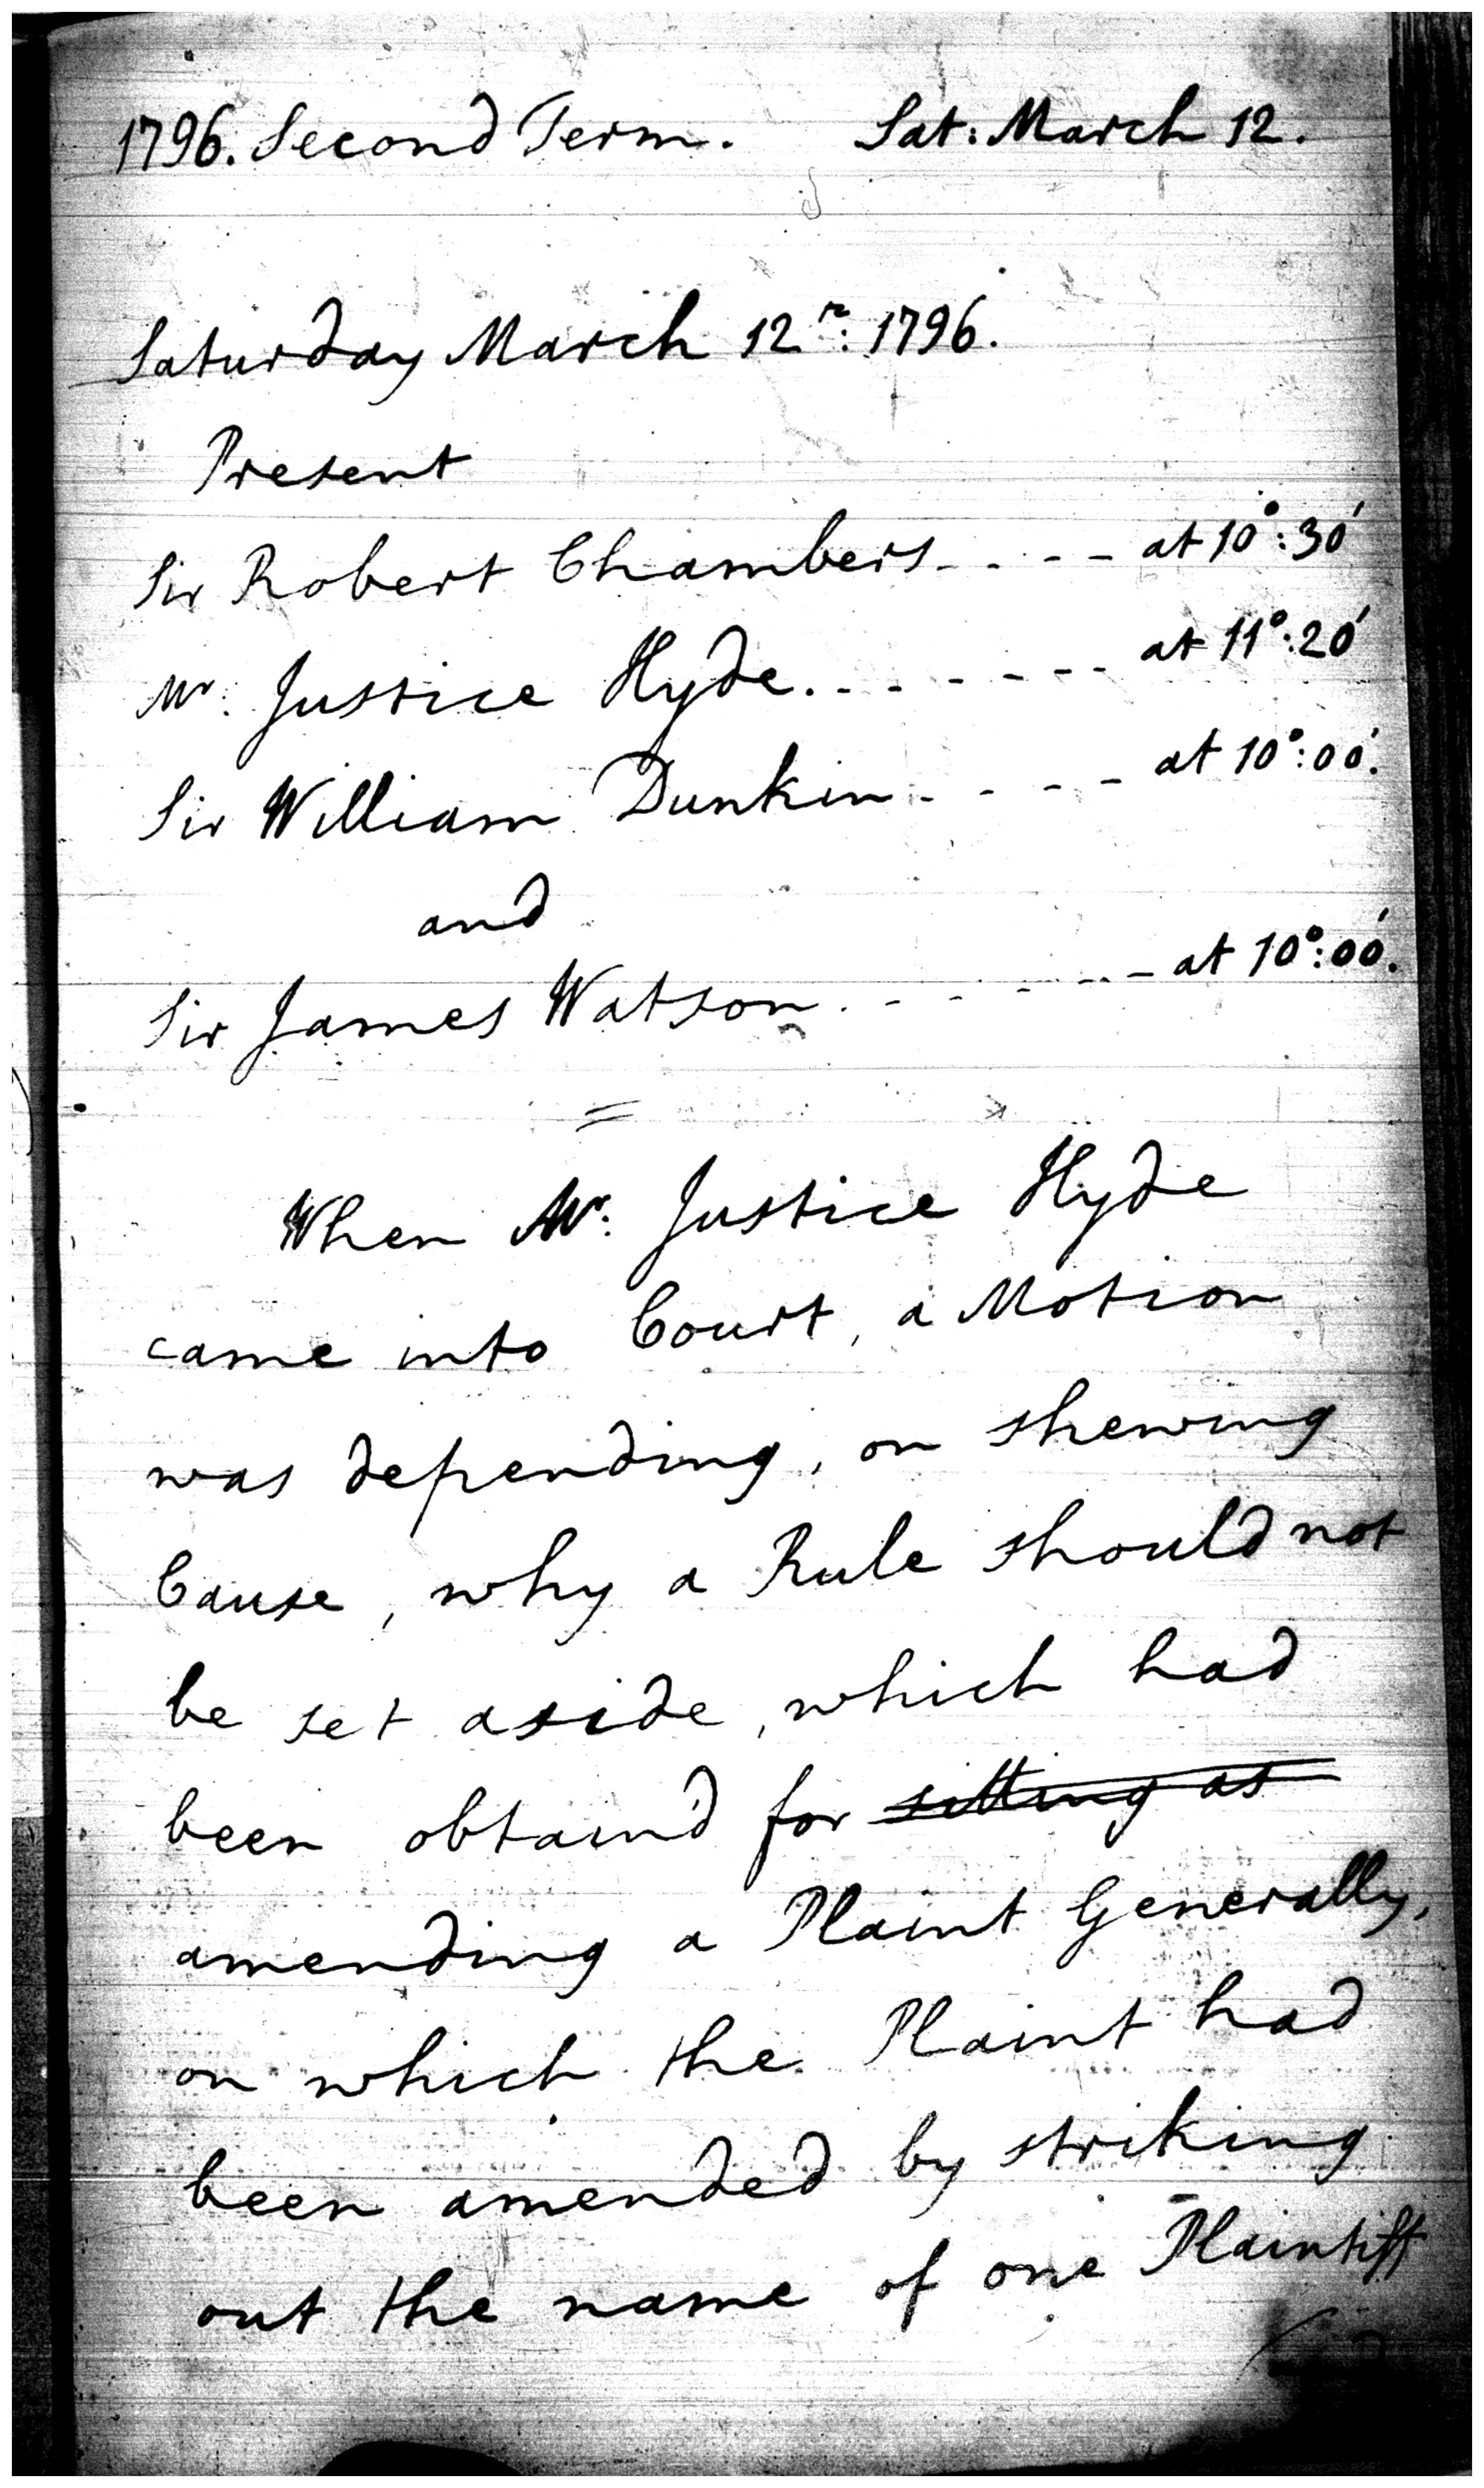 1796. Second Term. Sat: March 12.
Saturday March 12th: 1796.
Present
Sir Robert Chambers - - - - at 10°:30'
Mr: Justice Hyde. - - - - - - - at 11°:20'
Sir William Dunkin - - - - at 10°:00'.
and
Sir James Watson. - - - - - - at 10°:00'.
=
When Mr: Justice Hyde
came into Court, a Motion
was depending, on shewing
Cause, why a Rule should not
be set aside, which had
been obtain'd for sitting as
amending a Plaint Generally,
on which the Plaint had
been amended by striking
out the name of one Plaintiff